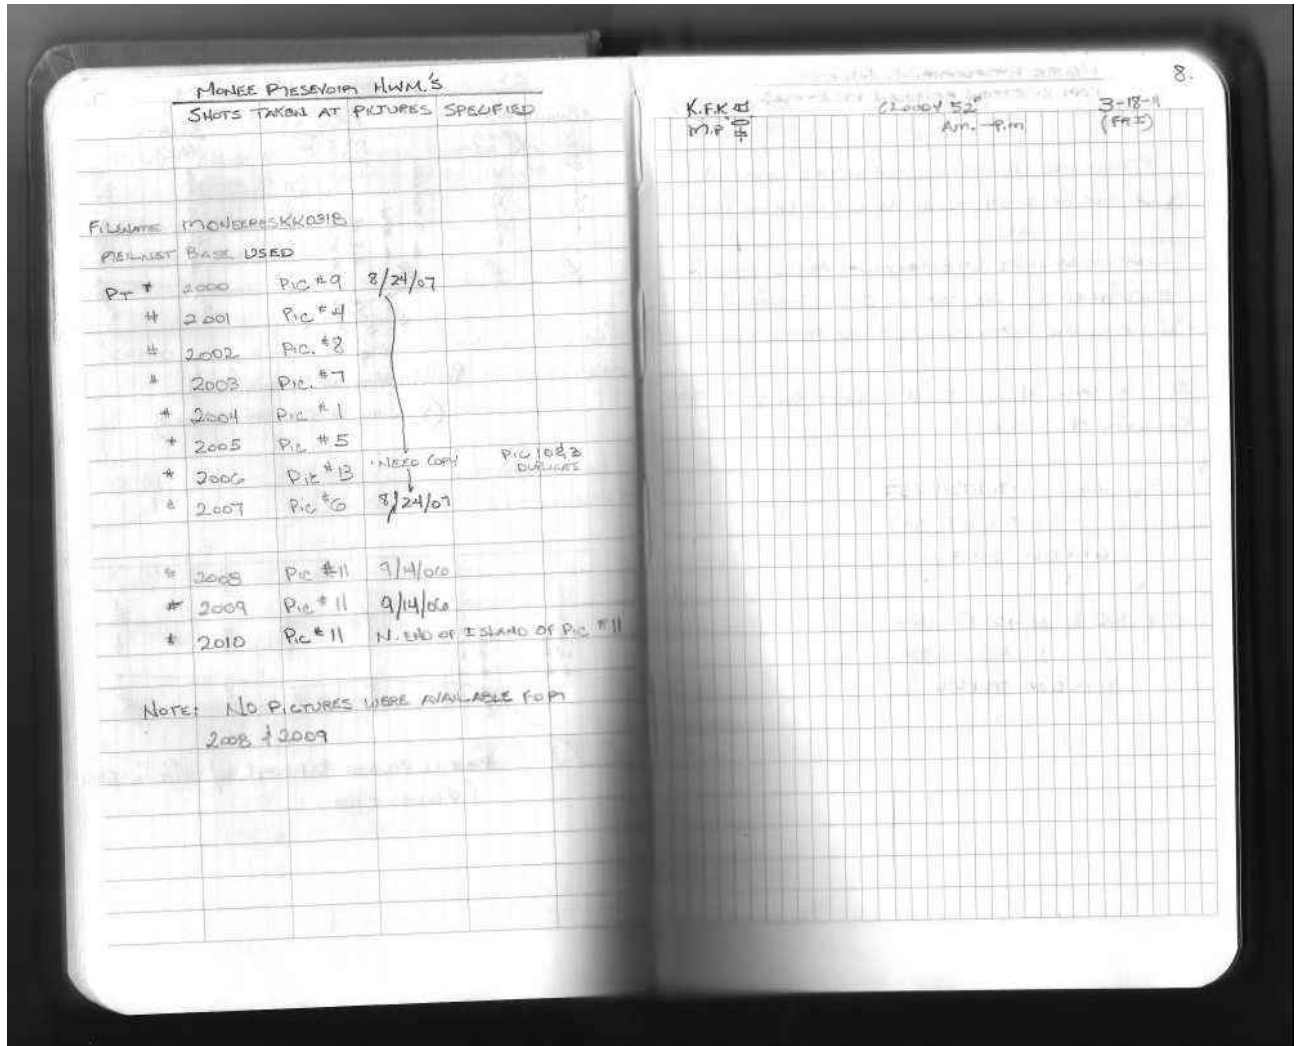 MONEE RESEVOIR HWM.'S
SHOTS TAKEN AT PICTURES SPECIFIED
FILENAME MONEERESKK0318
BASE USED
PT # 2000 PIC #9 8/24/07
# 2001 PIC #4
# 2002 PIC. #8
# 2003 PIC. #7
# 2004 PIC. #1
# 2005 PIC #5
# 2006 PIC #13 NEED COPY PIC 10&3
DUPLICATE
# 2007 PIC #6 8/24/07
# 2008 PIC #11 9/14/06
# 2009 PIC #11 9/14/06
# 2010 PIC #11 N. END OF ISLAND OF PIC #11
NOTE: NO PICTURES WERE AVAILABLE FOR
2008 & 2009
8.
K.F.K CLOUDY 52° 3-18-11
M.P. Am.-P.m (FRI)